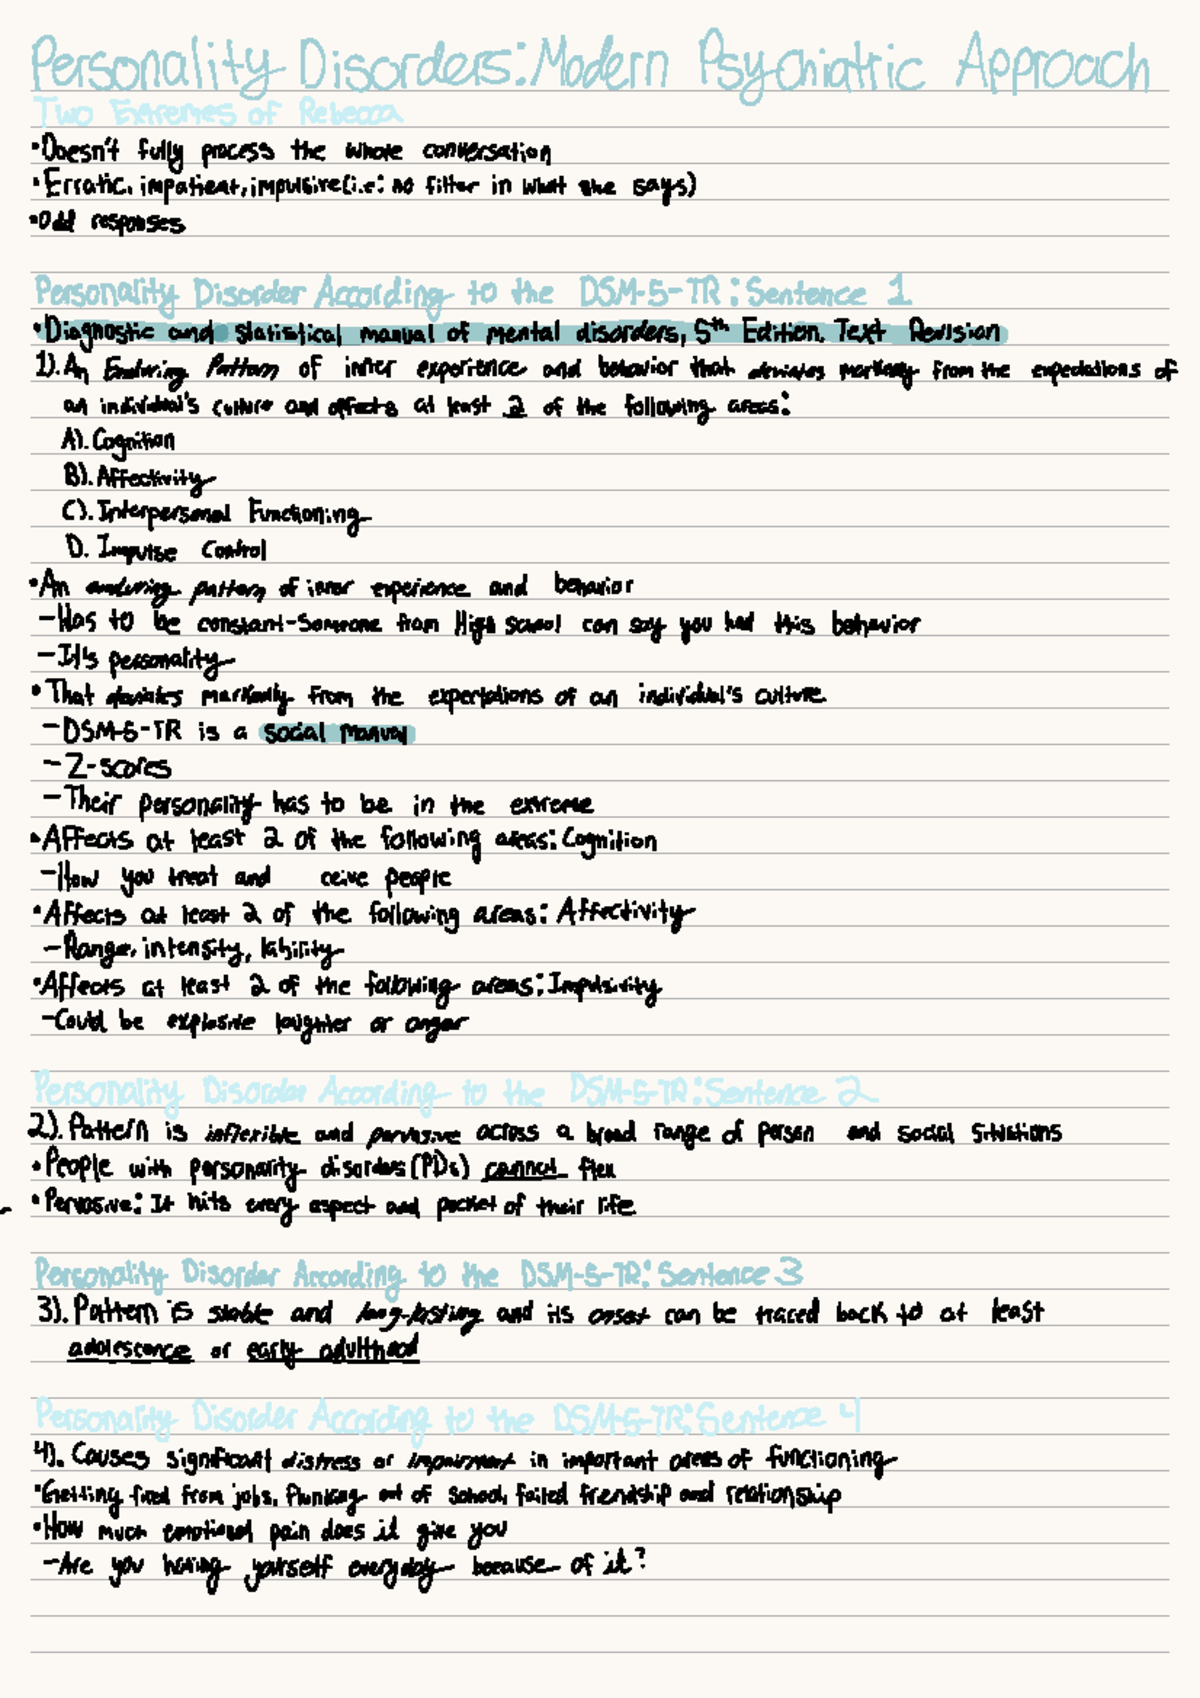 Personality Disorders: Modern Psychiatric Approach
Two Extremes of Rebecca
•Doesn't fully process the whole conversation
•Erratic, impatient, impulsive (i.e: no filter in what she says)
•Odd responses
Personality Disorder According to the DSM-5-TR: Sentence 1
•Diagnostic and statistical manual of mental disorders, 5th Edition. Text Revision
1). An Enduring Pattern of inner experience and behavior that deviates markedly from the expectations of
an individual's culture and affects at least 2 of the following areas:
A). Cognition
B). Affectivity
C). Interpersonal Functioning
D. Impulse Control
•An enduring pattern of inner experience and behavior
-Has to be constant-Someone from High school can say you had this behavior
-It's personality
•That deviates markedly from the expectations of an individual's culture
-DSM-5-TR is a social manual
-Z-scores
-Their personality has to be in the extreme
•Affects at least 2 of the following areas: Cognition
-How you treat and ceive people
•Affects at least 2 of the following areas: Affectivity
-Range, intensity, lability
•Affects at least 2 of the following areas: Impulsivity
-Could be explosive laughter or anger
Personality Disorder According to the DSM-5-TR: Sentence 2
2). Pattern is inflexible and pervasive across a broad range of person and social situations
•People with personality disorders (PDs) cannot flex
•Pervasive: It hits every aspect and pocket of their life
Personality Disorder According to the DSM-5-TR: Sentence 3
3). Pattern is stable and long-lasting and its onset can be traced back to at least
adolescence or early adulthood
Personality Disorder According to the DSM-5-TR: Sentence 4
4). Causes significant distress or impairment in important areas of functioning
•Getting fired from jobs, flunking out of school, failed friendship and relationship
•How much emotional pain does it give you
-Are you hating yourself everyday because of it?